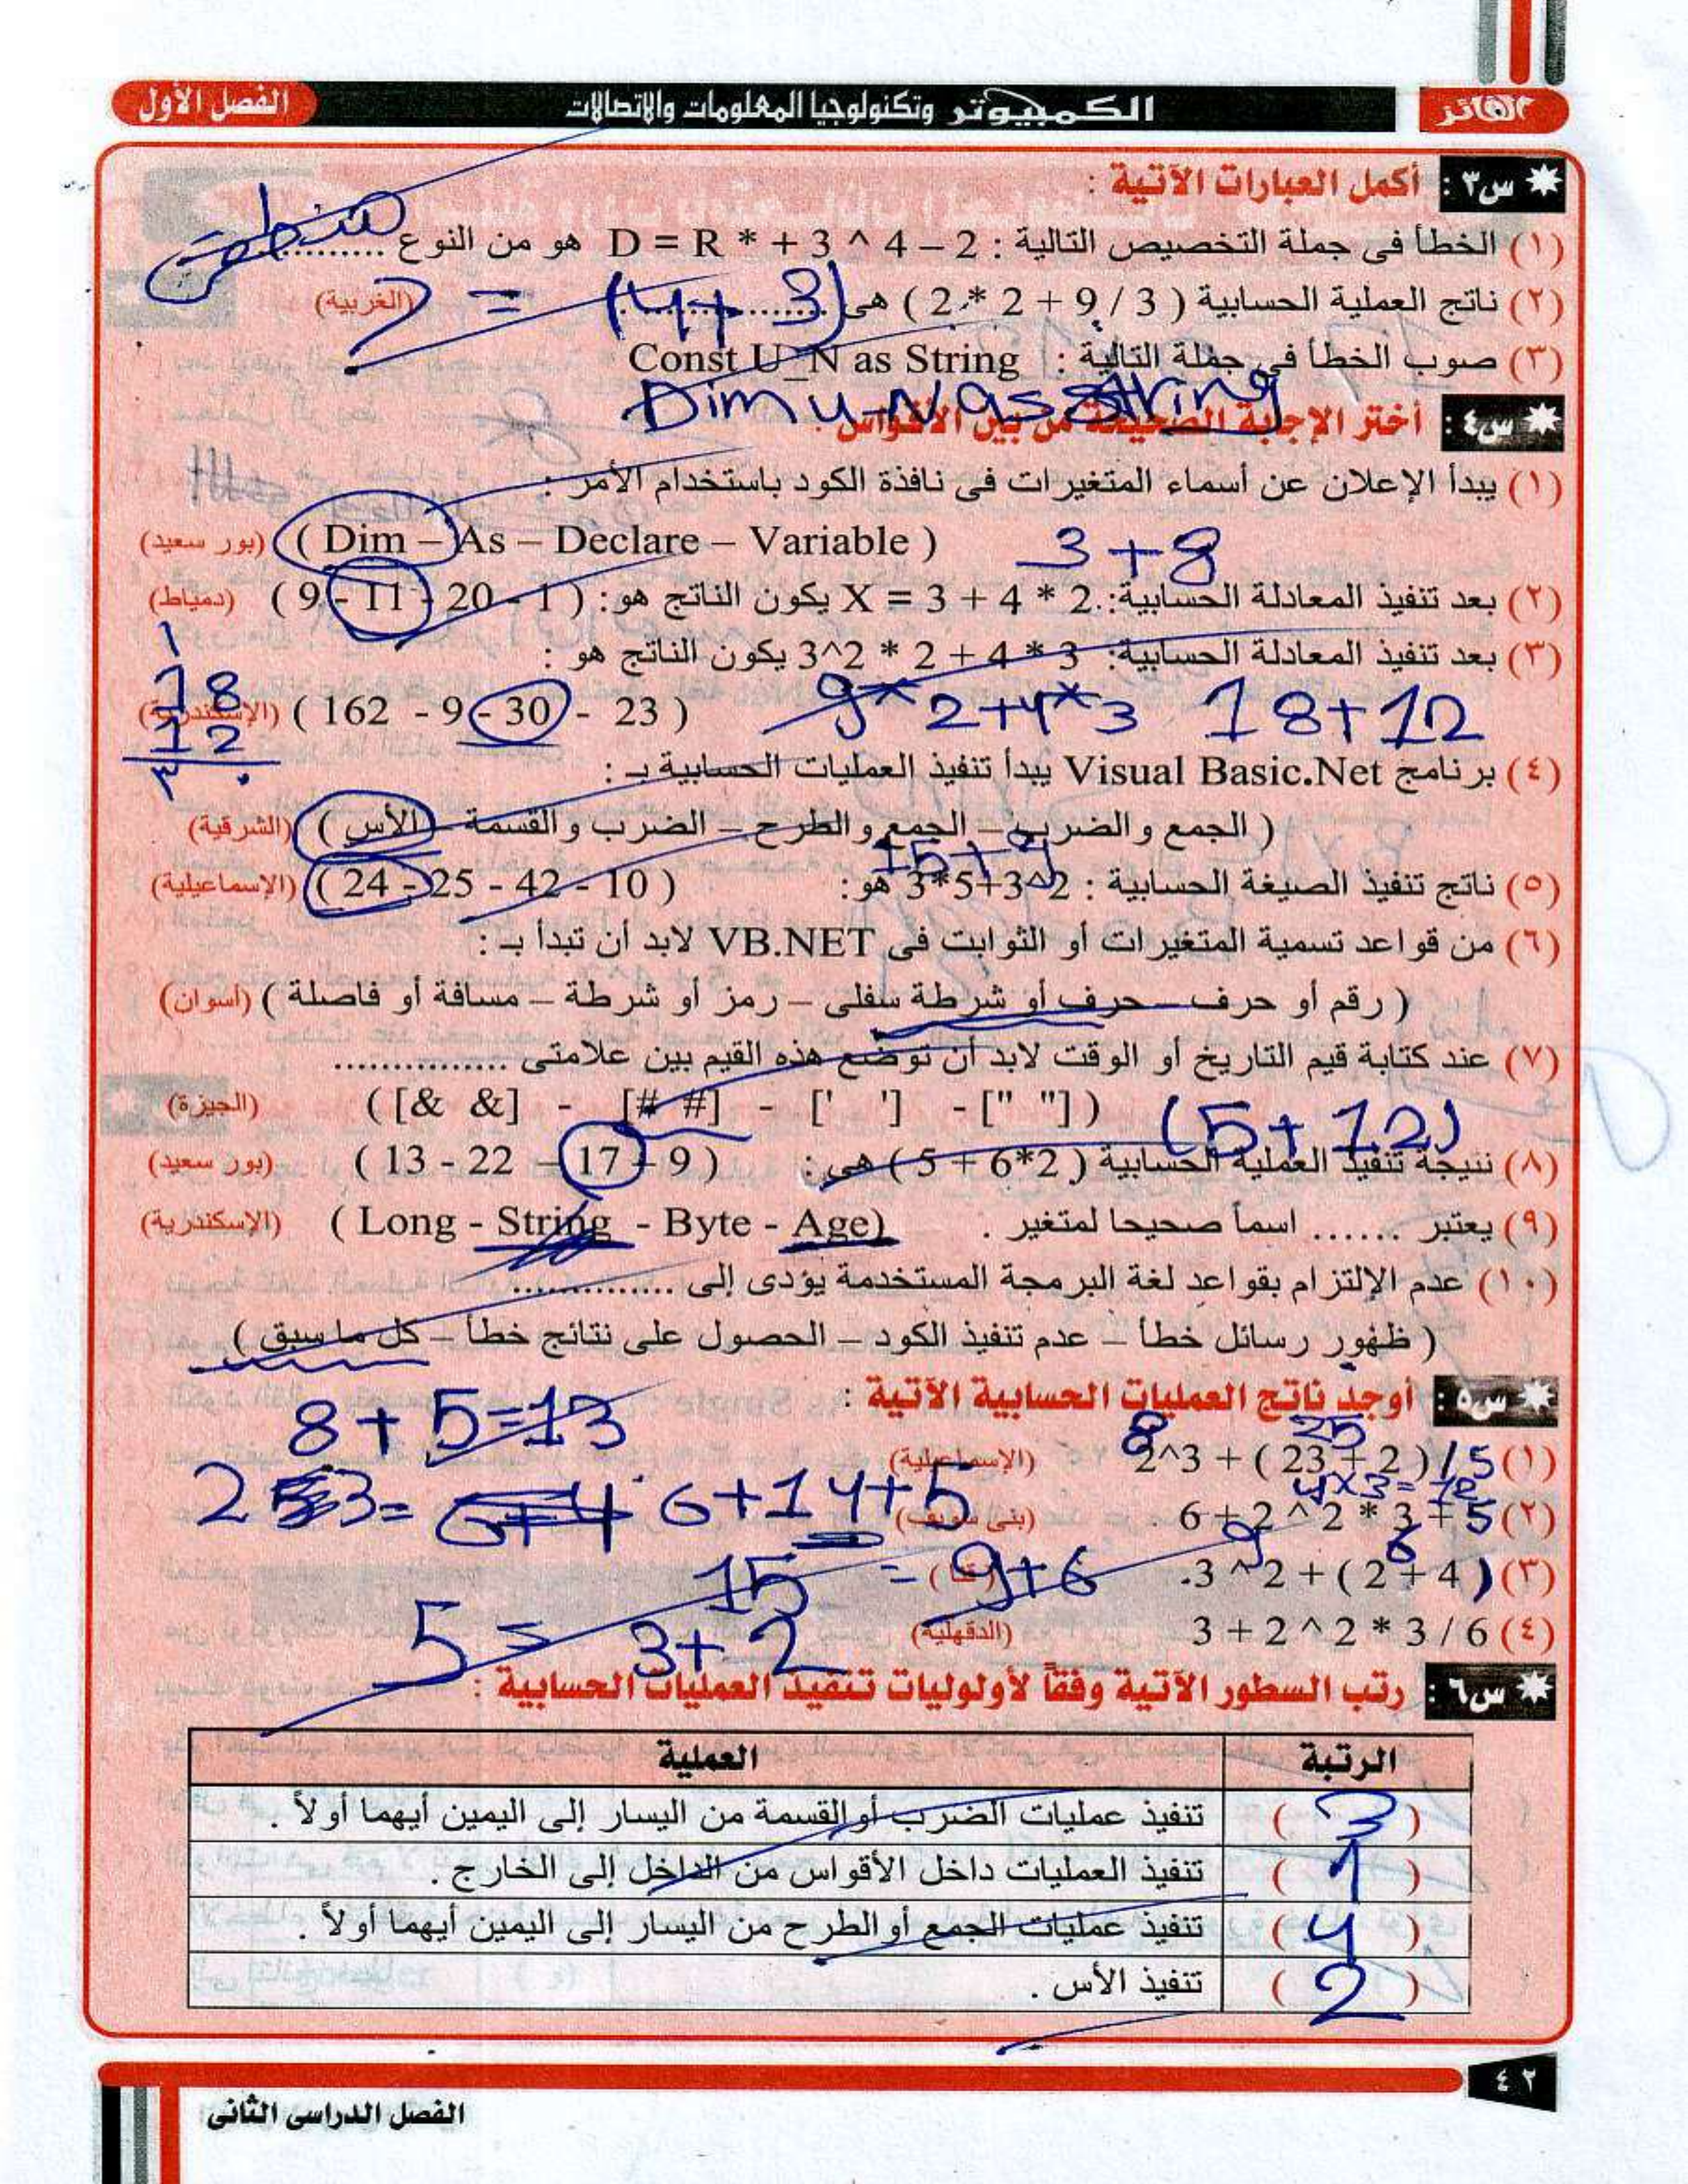 الفائز
الكمبيوتر وتكنولوجيا المعلومات والاتصالات
الفصل الأول
س٣ : أكمل العبارات الآتية :
(١) الخطأ فى جملة التخصيص التالية : D = R * + 3 ^ 4 – 2 هو من النوع ............
(٢) ناتج العملية الحسابية ( 2 * 2 + 9 / 3 ) هى ............... (الغربية)
7 = (4 + 3)
(٣) صوب الخطأ فى جملة التالية : Const U_N as String
Dim u_N as string
س٤ : أختر الإجابة الصحيحة من بين الأقواس :
(١) يبدأ الإعلان عن أسماء المتغيرات فى نافذة الكود باستخدام الأمر :
( Dim – As – Declare – Variable ) (بور سعيد)
3 + 8
(٢) بعد تنفيذ المعادلة الحسابية: X = 3 + 4 * 2 يكون الناتج هو: ( 9 - 11 - 20 - 1 ) (دمياط)
(٣) بعد تنفيذ المعادلة الحسابية: 3^2 * 2 + 4 * 3 يكون الناتج هو :
( 162 - 9 - 30 - 23 ) (الإسكندرية)
9 * 2 + 4 * 3 18 + 12
1
18
12
٣٠
(٤) برنامج Visual Basic.Net يبدأ تنفيذ العمليات الحسابية بـ :
( الجمع والضرب – الجمع والطرح – الضرب والقسمة – الأس ) (الشرقية)
15 + 9
(٥) ناتج تنفيذ الصيغة الحسابية : 3*5+3^2 هو: ( 24 - 25 - 42 - 10 ) (الإسماعيلية)
(٦) من قواعد تسمية المتغيرات أو الثوابت فى VB.NET لابد أن تبدأ بـ :
( رقم أو حرف – حرف أو شرطة سفلى – رمز أو شرطة – مسافة أو فاصلة ) (أسوان)
(٧) عند كتابة قيم التاريخ أو الوقت لابد أن توضع هذه القيم بين علامتى ...............
( [& &] - [# #] - [' '] - [" "] ) (الجيزة)
(5 + 12)
(٨) نتيجة تنفيذ العملية الحسابية ( 5 + 6*2 ) هى : ( 13 - 22 – 17 – 9 ) (بور سعيد)
(٩) يعتبر ....... اسماً صحيحا لمتغير . ( Long - String - Byte - Age) (الإسكندرية)
(١٠) عدم الإلتزام بقواعد لغة البرمجة المستخدمة يؤدى إلى ...............
( ظهور رسائل خطأ – عدم تنفيذ الكود – الحصول على نتائج خطأ – كل ما سبق )
س٥ : أوجد ناتج العمليات الحسابية الآتية :
8 + 5 = 13
8 25
(١) 2^3 + ( 23 + 2 ) / 5 (الإسماعيلية)
4 x 3 = 12
(٢) 6 + 2 ^ 2 * 3 + 5 (بنى سويف)
6 + 14 + 5
9 6
(٣) 3 ^ 2 + ( 2 + 4 ) (قنا)
15 = 9 + 6
(٤) 3 + 2 ^ 2 * 3 / 6 (الدقهلية)
5 = 3 + 2
س٦ : رتب السطور الآتية وفقاً لأولوليات تنفيذ العمليات الحسابية :
الرتبة العملية
( 3 ) تنفيذ عمليات الضرب أو القسمة من اليسار إلى اليمين أيهما أولاً .
( 1 ) تنفيذ العمليات داخل الأقواس من الداخل إلى الخارج .
( 4 ) تنفيذ عمليات الجمع أو الطرح من اليسار إلى اليمين أيهما أولاً .
( 2 ) تنفيذ الأس .
٤٢
الفصل الدراسى الثانى